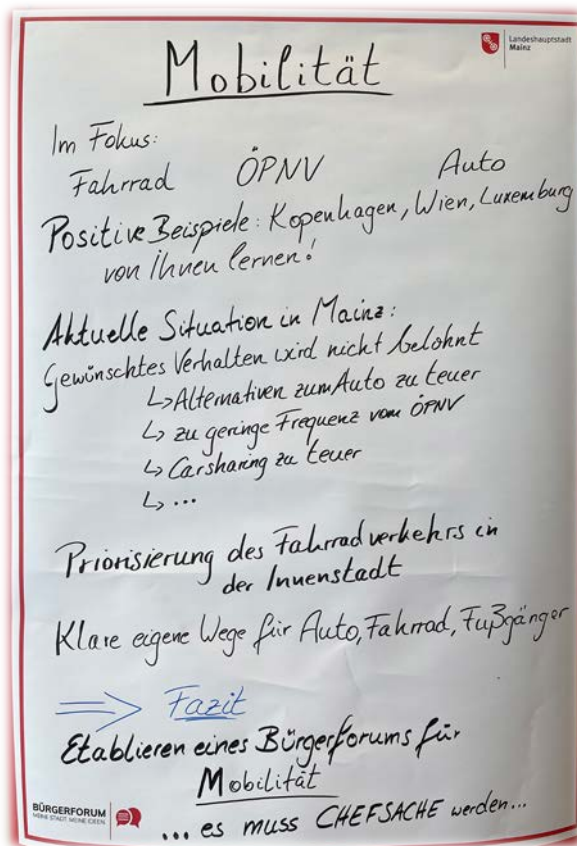 Landeshauptstadt
Mainz
Mobilität
Im Fokus:
Fahrrad ÖPNV Auto
Positive Beispiele: Kopenhagen, Wien, Luxemburg
von Ihnen lernen!
Aktuelle Situation in Mainz:
Gewünschtes Verhalten wird nicht belohnt
↳ Alternativen zum Auto zu teuer
↳ zu geringe Frequenz vom ÖPNV
↳ Carsharing zu teuer
↳ ...
Priorisierung des Fahrradverkehrs in
der Innenstadt
Klare eigene Wege für Auto, Fahrrad, Fußgänger
⇒ Fazit
Etablieren eines Bürgerforums für
Mobilität
... es muss CHEFSACHE werden...
BÜRGERFORUM
MEINE STADT. MEINE IDEEN.